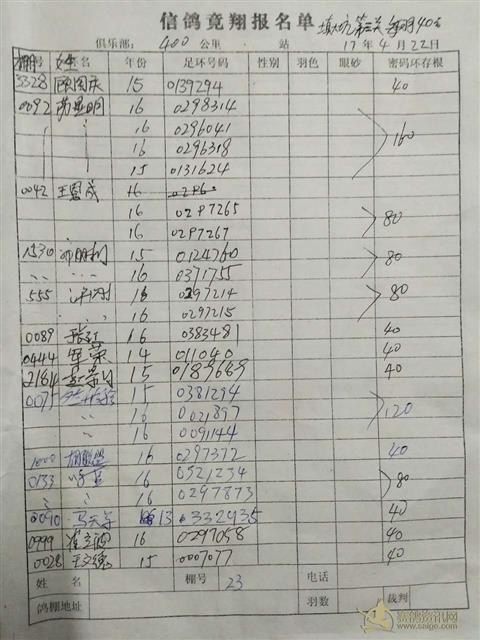 信鸽竞翔报名单 填坑第二关 每羽40元
俱乐部: 400 公里 站 17年4月22日
棚号 姓名 年份 足环号码 性别 羽色 眼砂 密码环存根
3328 顾国庆 15 0139294 40
0092 16 0298314
16 0296041 160
16 0296318
15 0131624
0042 王恩成 16
16 0297265 80
16 0297267
1530 15 0124760 80
16 0371755
555 16 0297214 80
16 0297215
0089 张江 16 0383481 40
0444 军荣 14 011040 40
15 0189669 40
0075 15 0381294
16 0021897 120
16 0091144
1000 16 0297372 40
0133 16 0521234 80
16 0297873
0090 马天 13 0332935 40
0999 16 0297058 40
0028 王文德 15 0007077 40
姓名 棚号 23 电话
鸽棚地址 羽数 裁判
赛鸽资讯网
www.saige.com